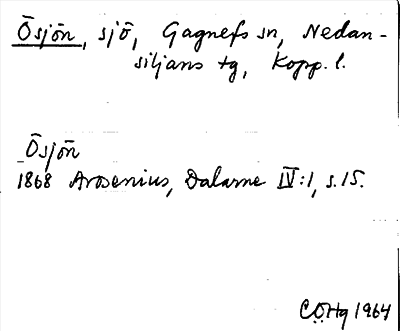 Ösjön, sjö, Gagnefs sn, Nedan-
siljans tg, Kopp. l.
Ösjön
1868 Arosenius, Dalarne IV:1, s. 15.
CÖHg 1964